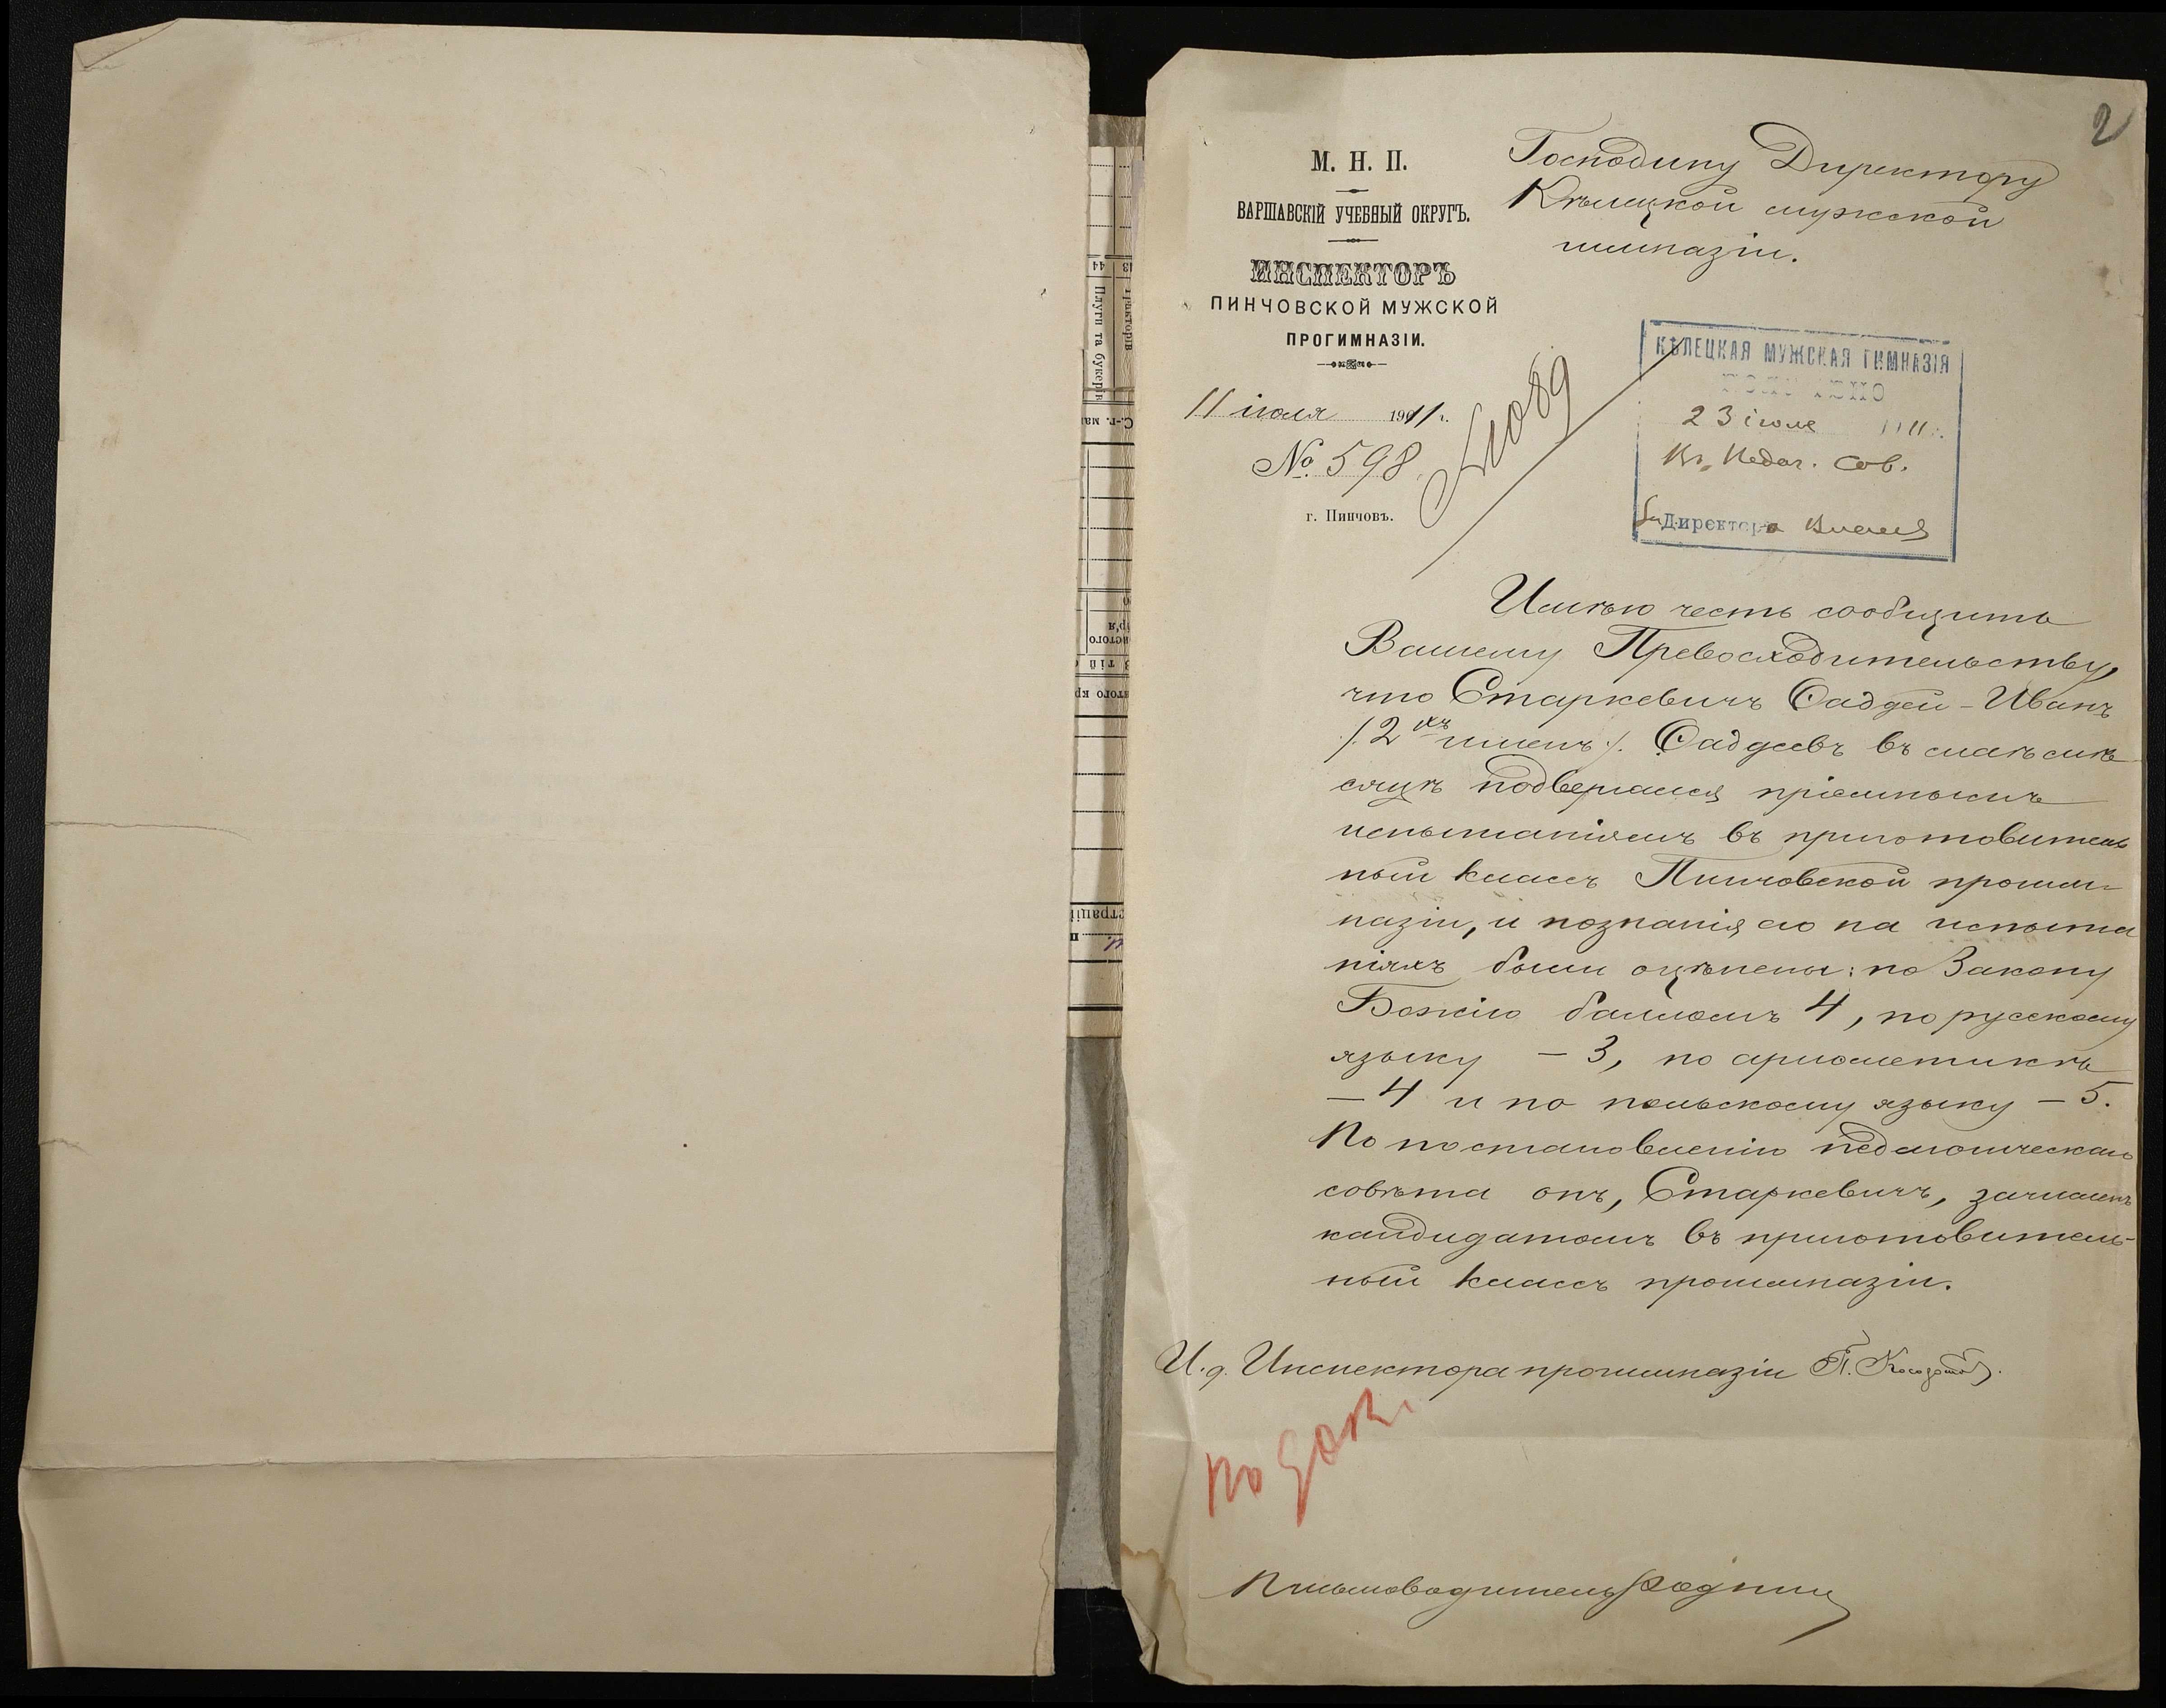 2
М. Н. П.
ВАРШАВСКІЙ УЧЕБНЫЙ ОКРУГЪ.
ИНСПЕКТОРЪ
ПИНЧОВСКОЙ МУЖСКОЙ
ПРОГИМНАЗІИ.
11 іюля 1911 г.
№ 598
г. Пинчовъ.
Господину Директору
Кѣлецкой мужской
гимназіи.
КѢЛЕЦКАЯ МУЖСКАЯ ГИМНАЗІЯ
ПОЛУЧЕНО
23 іюля 1911 г.
Въ Педаг. Сов.
Директора
Имѣю честь сообщить
Вашему Превосходительству,
что Старкевичъ Ѳаддей-Иванъ
/2хъ именъ/. Ѳаддеевъ въ маѣ мѣ
сяцѣ подвергался пріемнымъ
испытаніямъ въ приготовитель
ный классъ Пинчовской прогим-
назіи, и познанія его на испыта
ніяхъ были оцѣнены: по Закону
Божію балломъ 4, по русскому
языку – 3, по ариѳметикѣ
– 4 и по польскому языку – 5.
По постановленію педагогическаго
совѣта онъ, Старкевичъ, зачисленъ
кандидатомъ въ приготовитель-
ный классъ прогимназіи.
И.д. Инспектора прогимназіи П.
Письмоводитель
44 Плуги та букерів
тракторів
С.-г. маш
истого